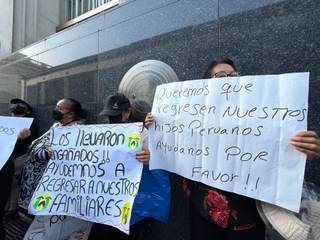 os
Los llevaron
engañados!!
ayudemos a
regresar a nuestros
familiares
Queremos que
regresen nuestros
hijos Peruanos
Ayudanos Por
Favor!!